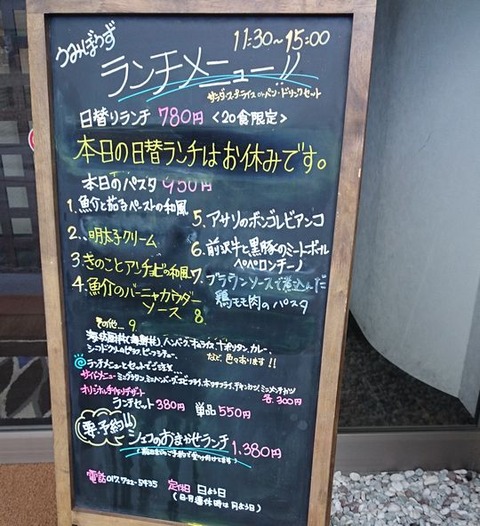 うみぼうず
11:30~15:00
ランチメニュー!!
サラダ・スープ・ライスorパン・ドリンクセット
日替りランチ 780円 <20食限定>
本日の日替ランチはお休みです。
本日のパスタ 950円
1. 魚介と茄子ペーストの和風
2. 明太子クリーム
3. きのことアンチョビの和風
4. 魚介のバーニャカウダーソース
5. アサリのボンゴレビアンコ
6. 前沢牛と黒豚のミートボール
ペペロンチーノ
7. ブラウンソースで煮込んだ
鶏モモ肉のパスタ
8.
その他… 9.
ハンバーグ、オムライス、ナポリタン、カレー、
など、色々あります!!
ランチメニューとセットでご注文を…
サイドメニュー
各300円
オリジナルデザート
ランチセット380円 単品550円
要予約!!
シェフのおまかせランチ 1,380円
(前日までにご予約で受け付けてます)
電話 017-722-5435 定休日 日よう日
(日月連休時は月よう日)